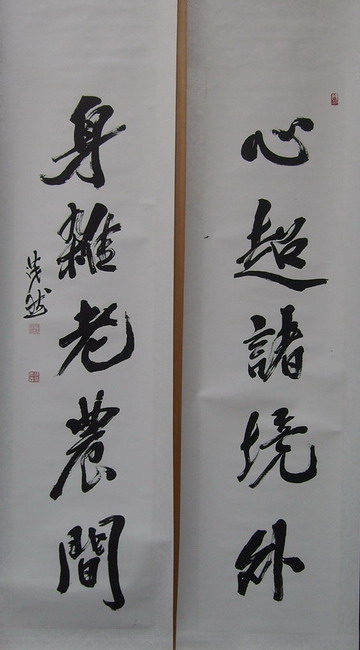 心超諸境外
身雜老農間